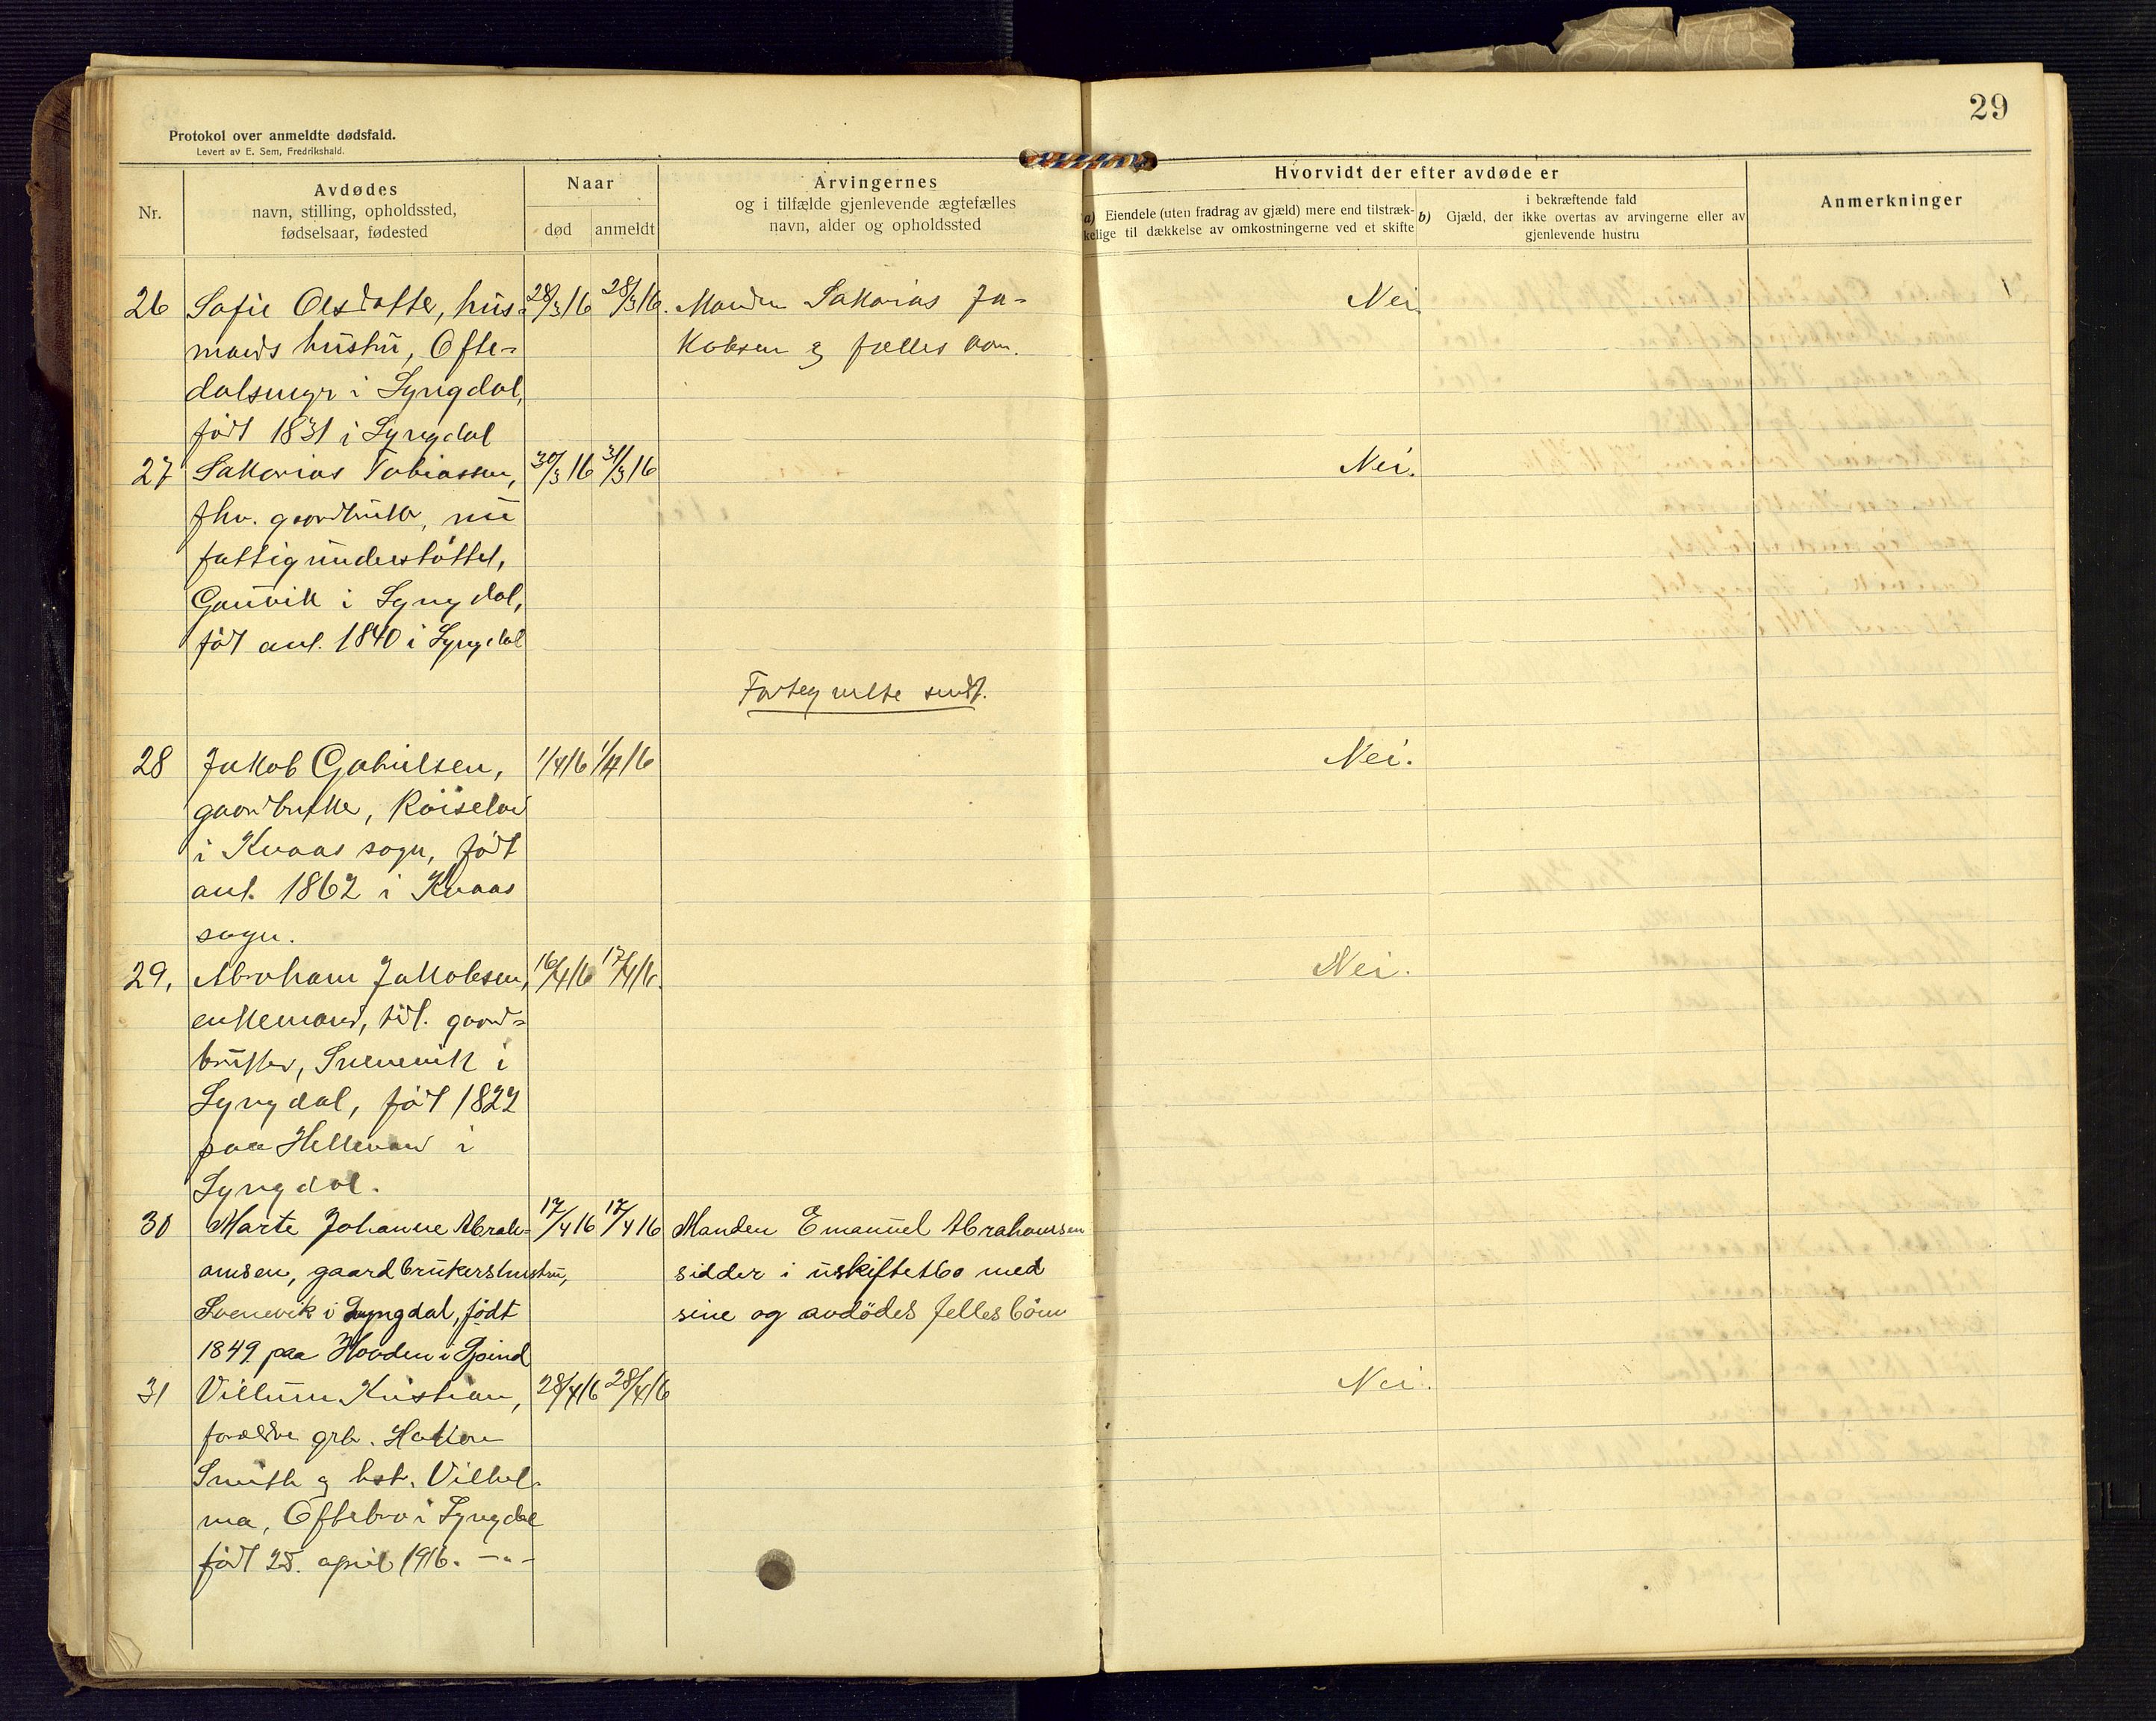 29
Protokol over anmeldte dødsfald.
Levert av E. Sem, Fredrikshald.
Nr.
Avdødes
navn, stilling, opholdssted,
fødselsaar, fødested
Naar
død
anmeldt
Arvingernes
og i tilfælde gjenlevende ægtefælles
navn, alder og opholdssted
Hvorvidt der efter avdøde er
a) Eiendele (uten fradrag av gjæld) mere end tilstræk-
kelige til dækkelse av omkostningerne ved et skifte
i bekræftende fald
b) Gjæld, der ikke overtas av arvingerne eller av
gjenlevende hustru
Anmerkninger
26 Sofie Olsdatter, hus- 28/3 16 28/3 16. Manden Sakarias Ja- Nei.
mands hustru, Ofte- kobsen & fælles barn.
dalsmyr i Lyngdal,
født 1831 i Lyngdal
27 Sakarias Tobiassen, 30/3 16 31/3 16 Nei.
fhv. gaardbruker, nu
fattigunderstøttet,
Gauvik i Lyngdal,
født ant. 1840 i Lyngdal
Fortegnelse sendt.
28 Jakob Gabrielsen, 1/4 16 1/4 16 Nei.
gaardbruker, Røiseland
i Kvaas sogn, født
ant. 1862 i Kvaas
sogn.
29. Abraham Jakobsen, 16/4 16 17/4 16. Nei.
enkemand, tidl. gaard-
bruker, Svenevik i
Lyngdal, født 1822
paa Hellevand i
Lyngdal.
30 Marte Johanne Abrah- 17/4 16 17/4 16 Manden Emanuel Abrahamsen
amsen, gaardbrukershustru, sidder i uskiftet bo med
Svenevik i Lyngdal, født sine og avdødes felles børn
1849 paa Hovden i Spind
31 Villum Kristian, 28/4 16 28/4 16 Nei.
forældre grb. Hakon
Smith & hst. Vilhel-
ma, Oftebro i Lyngdal
født 28. april 1916. -"-